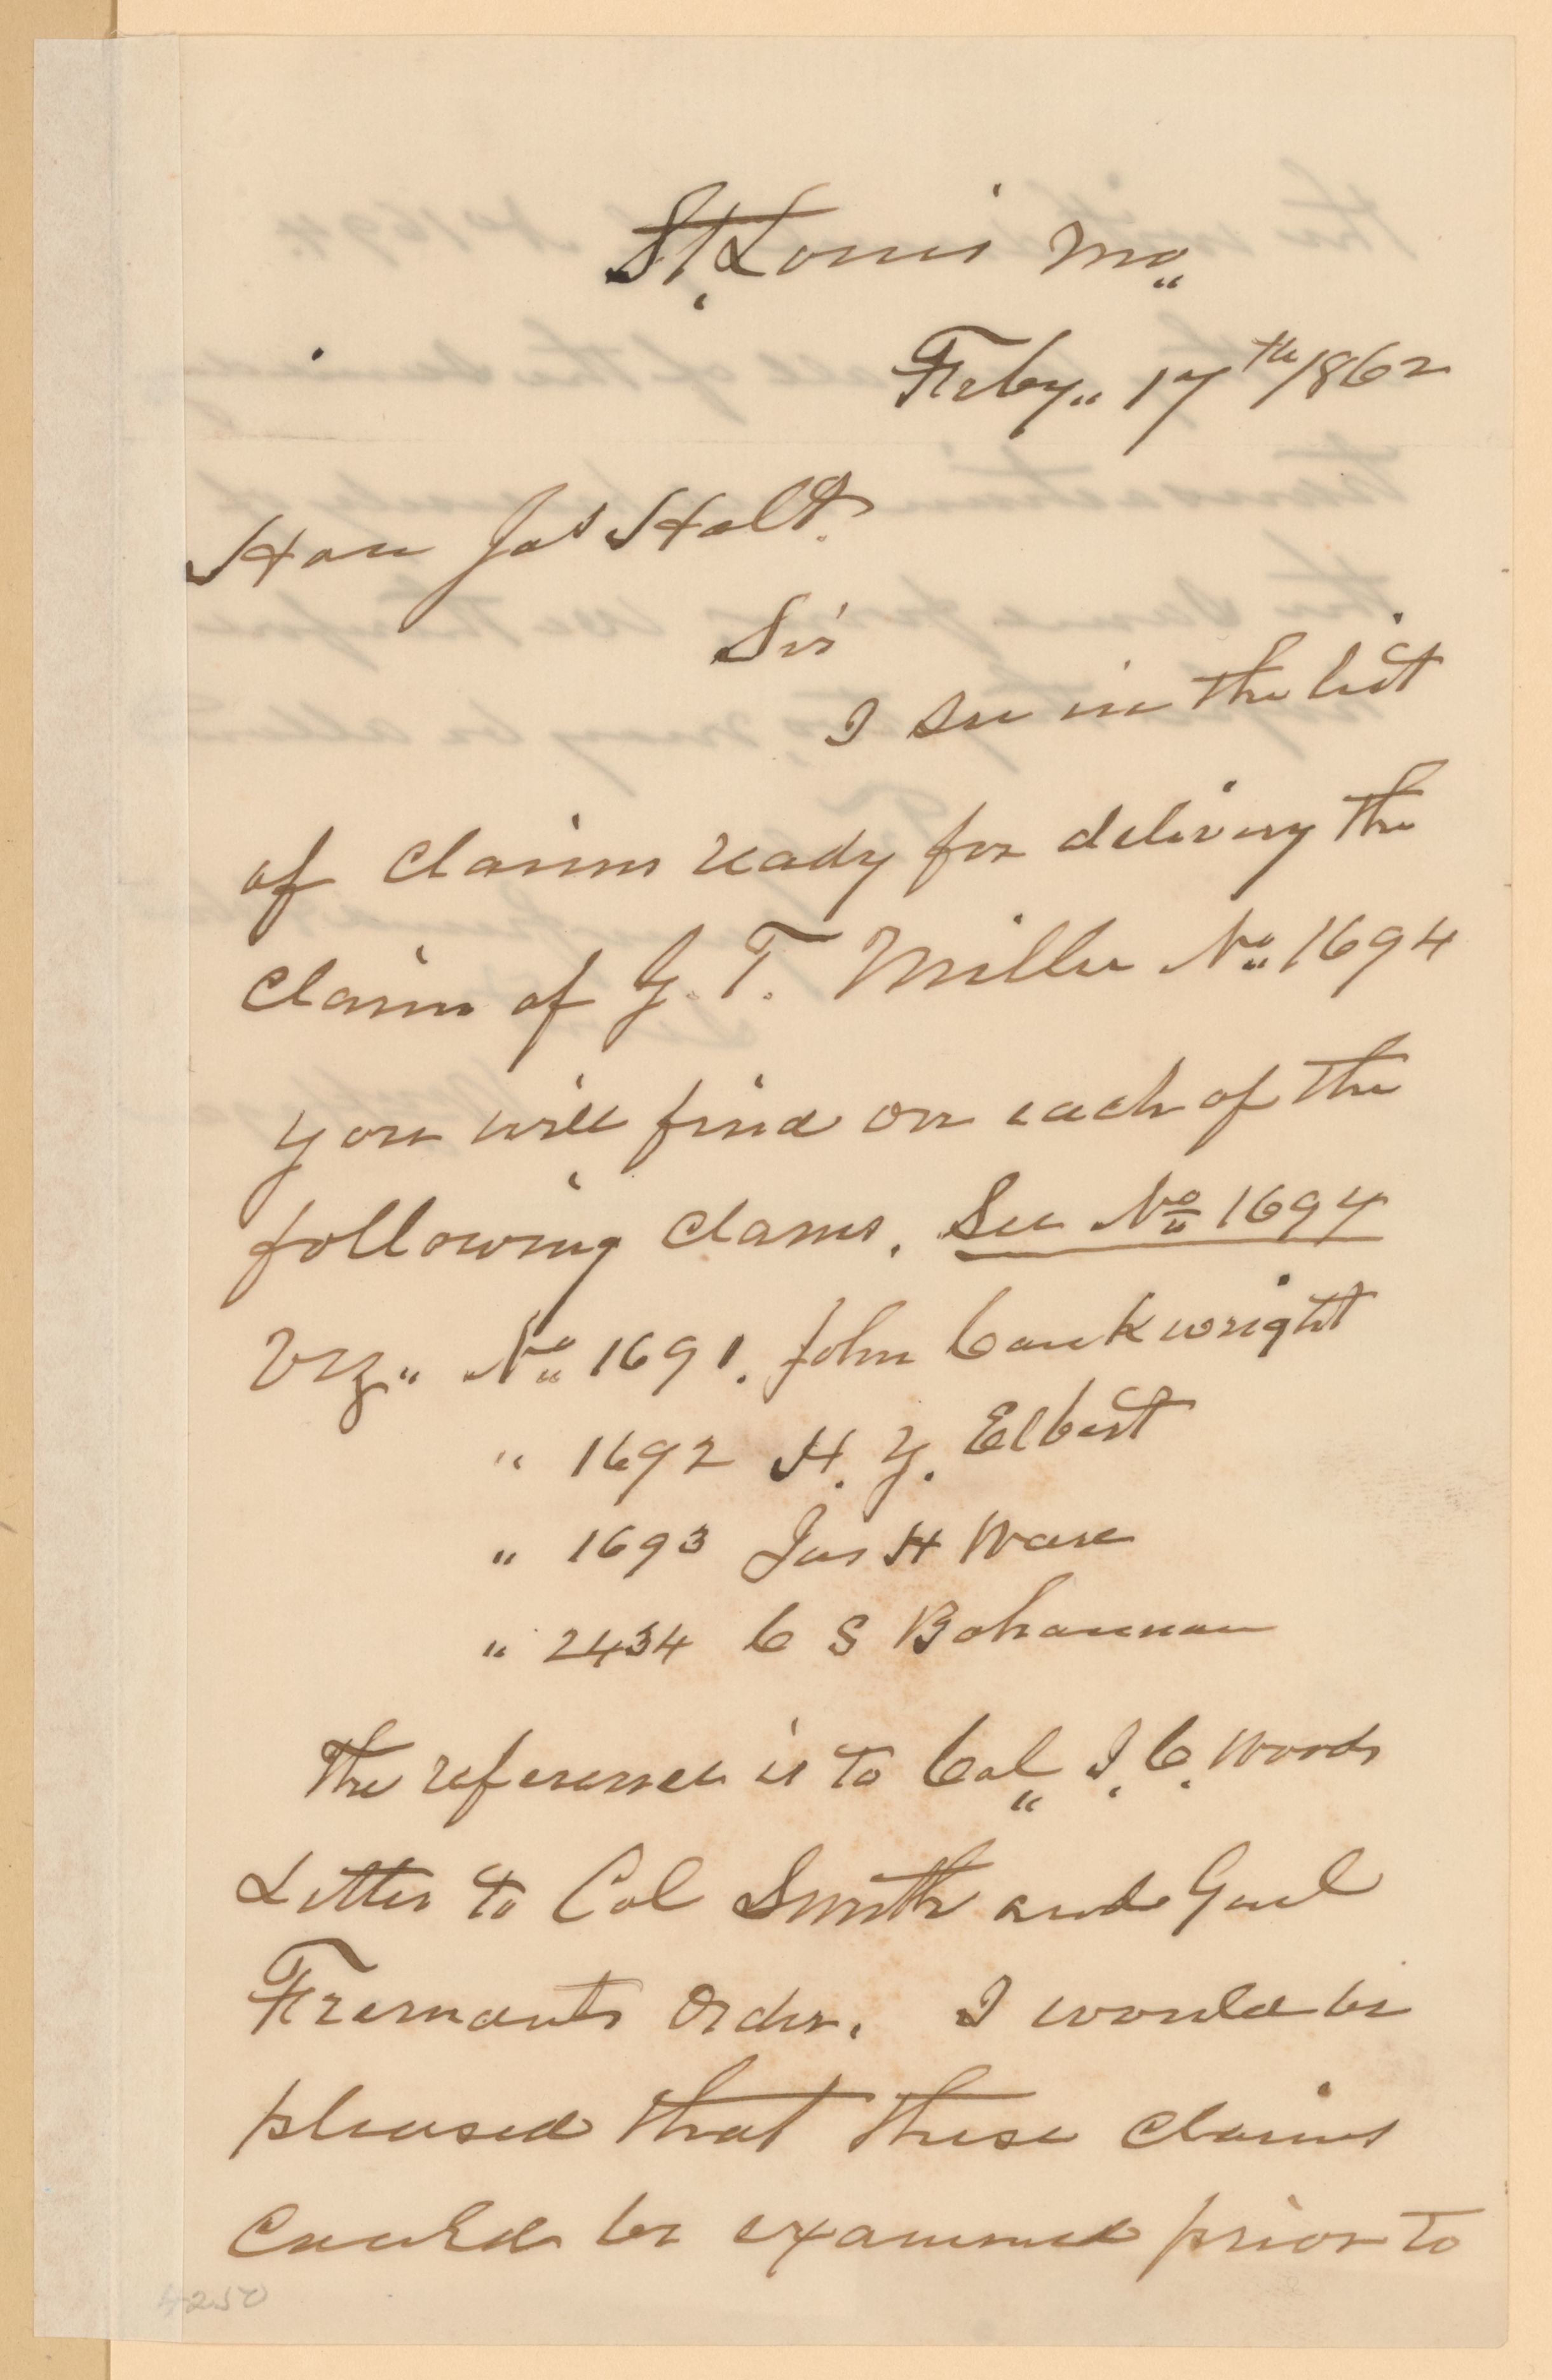 St. Louis Mo.
Feby. 17th/1862
Hon Jos Holt.
Sir
I see in the list
of claims ready for delivery the
claim of G. T. Miller No. 1694
you will find on each of the
following clams. See No. 1694
Viz. No. 1691. John Cauk wright
" 1692 H. Y. Elbert
" 1693 Jas H Ware
" 2434 C S Bohannan
The reference is to Col. I. C. Woods
Letter to Col Smith and Genl
Fremonts Order. I would be
pleased that these claims
could be examined prior to
4250